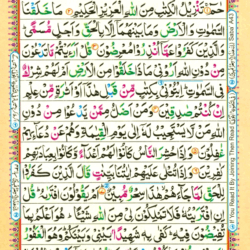 حٰمٓ تَنْزِيْلُ الْكِتٰبِ مِنَ اللّٰهِ الْعَزِيْزِ الْحَكِيْمِ مَا خَلَقْنَا
السَّمٰوٰتِ وَالْاَرْضَ وَمَا بَيْنَهُمَاۤ اِلَّا بِالْحَقِّ وَاَجَلٍ مُّسَمًّى
وَالَّذِيْنَ كَفَرُوْا عَمَّاۤ اُنْذِرُوْا مُعْرِضُوْنَ قُلْ اَرَءَيْتُمْ مَّا تَدْعُوْنَ
مِنْ دُوْنِ اللّٰهِ اَرُوْنِيْ مَاذَا خَلَقُوْا مِنَ الْاَرْضِ اَمْ لَهُمْ شِرْكٌ
فِي السَّمٰوٰتِ اِيْتُوْنِيْ بِكِتٰبٍ مِّنْ قَبْلِ هٰذَاۤ اَوْ اَثٰرَةٍ مِّنْ عِلْمٍ
اِنْ كُنْتُمْ صٰدِقِيْنَ وَمَنْ اَضَلُّ مِمَّنْ يَّدْعُوْا مِنْ دُوْنِ
اللّٰهِ مَنْ لَّا يَسْتَجِيْبُ لَهٗۤ اِلٰى يَوْمِ الْقِيٰمَةِ وَهُمْ عَنْ دُعَآئِهِمْ
غٰفِلُوْنَ وَاِذَا حُشِرَ النَّاسُ كَانُوْا لَهُمْ اَعْدَآءً وَّكَانُوْا بِعِبَادَتِهِمْ
كٰفِرِيْنَ وَاِذَا تُتْلٰى عَلَيْهِمْ اٰيٰتُنَا بَيِّنٰتٍ قَالَ الَّذِيْنَ كَفَرُوْا
لِلْحَقِّ لَمَّا جَآءَهُمْ هٰذَا سِحْرٌ مُّبِيْنٌ اَمْ يَقُوْلُوْنَ افْتَرٰىهُ قُلْ
اِنِ افْتَرَيْتُهٗ فَلَا تَمْلِكُوْنَ لِيْ مِنَ اللّٰهِ شَيْـًٔا هُوَ اَعْلَمُ بِمَا
If You Read It By Joining Then Read